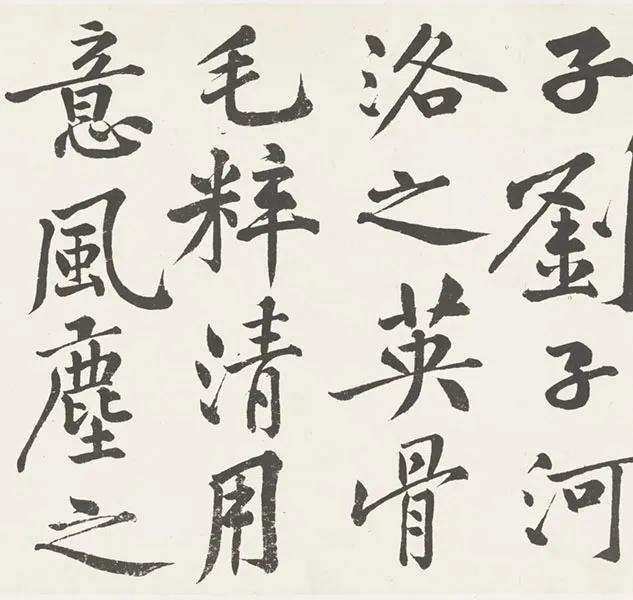 子劉子河
洛之英骨
毛粹清用
意風塵之